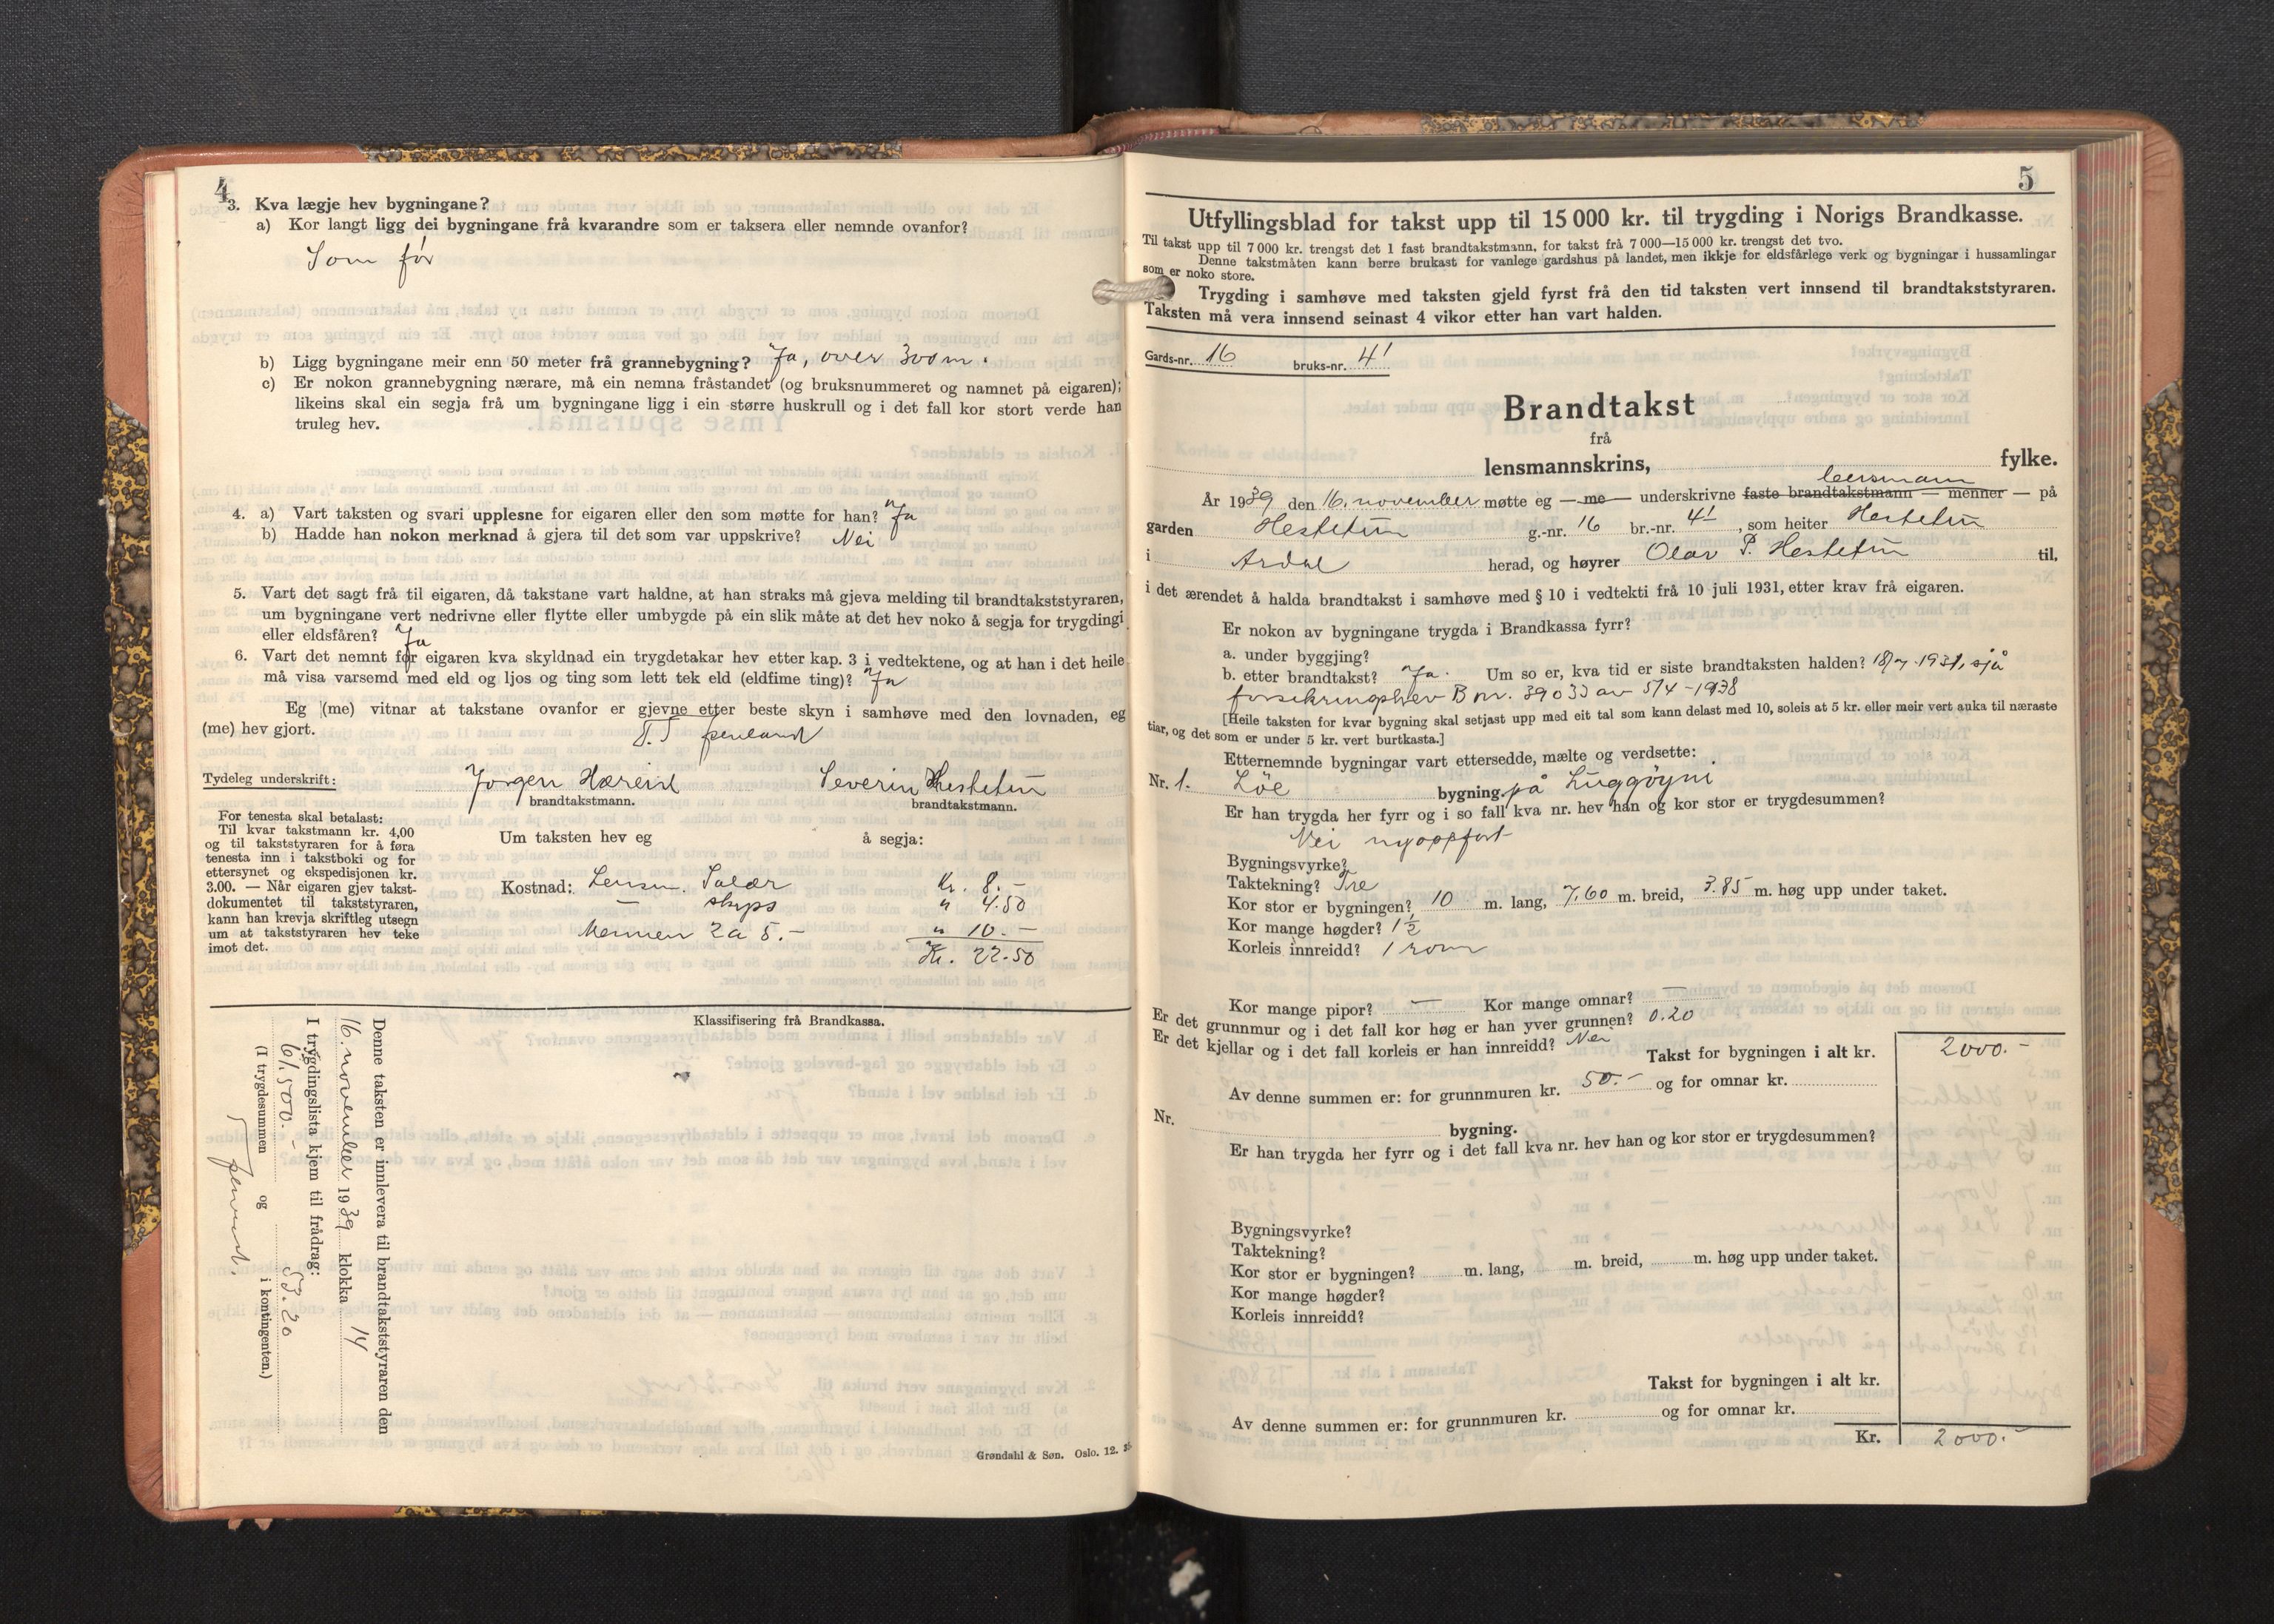 4
3. Kva lægje hev bygningane?
a) Kor langt ligg dei bygningane frå kvarandre som er taksera eller nemnde ovanfor?
Som før
b) Ligg bygningane meir enn 50 meter frå grannebygning? Ja, over 300 m.
c) Er nokon grannebygning nærare, må ein nemna fråstandet (og bruksnummeret og namnet på eigaren);
likeins skal ein segja frå um bygningane ligg i ein større huskrull og i det fall kor stort verde han
truleg hev.
4. a) Vart taksten og svari upplesne for eigaren eller den som møtte for han? Ja
b) Hadde han nokon merknad å gjera til det som var uppskrive? Nei
5. Vart det sagt frå til eigaren, då takstane vart haldne, at han straks må gjeva melding til brandtakststyraren,
um bygningane vert nedrivne eller flytte eller umbygde på ein slik måte at det hev noko å segja for trygdingi
eller eldsfåren? Ja
6. Vart det nemnt for eigaren kva skyldnad ein trygdetakar hev etter kap. 3 i vedtektene, og at han i det heile
må visa varsemd med eld og ljos og ting som lett tek eld (eldfime ting)? Ja
Eg (me) vitnar at takstane ovanfor er gjevne etter beste skyn i samhøve med den lovnaden, eg
(me) hev gjort.
Tydeleg underskrift: Jørgen Hæreid Severin Hestetun
brandtakstmann. brandtakstmann.
For tenesta skal betalast:
Til kvar takstmann kr. 4,00
og til takststyraren for å føra
tenesta inn i takstboki og for
ettersynet og ekspedisjonen kr.
3.00. — Når eigaren gjev takst-
dokumentet til takststyraren,
kann han krevja skriftleg utsegn
um at takststyraren hev teke
imot det.
Um taksten hev eg å segja:
Kostnad: Lensm. Salær Kr. 8.-
— skyss " 4.50
Mennen 2 a 5.- " 10.-
Kr. 22.50
Klassifisering frå Brandkassa.
Denne taksten er innlevera til brandtakststyraren den
16. november 1939 klokka 14
I trygdingslista kjem til frådrag:
61.500.- 53.20
(I trygdesummen og i kontingenten.)
Grøndahl & Søn. Oslo. 12.
5
Utfyllingsblad for takst upp til 15 000 kr. til trygding i Norigs Brandkasse.
Til takst upp til 7 000 kr. trengst det 1 fast brandtakstmann, for takst frå 7 000—15 000 kr. trengst det tvo.
Denne takstmåten kann berre brukast for vanlege gardshus på landet, men ikkje for eldsfårlege verk og bygningar i hussamlingar
som er noko store.
Trygding i samhøve med taksten gjeld fyrst frå den tid taksten vert innsend til brandtakststyraren.
Taksten må vera innsend seinast 4 vikor etter han vart halden.
Gards-nr. 16 bruks-nr. 41
Brandtakst
frå
lensmannskrins, fylke.
År 1939 den 16. november møtte eg — me — underskrivne faste brandtakstmann — menner — lensmann på
garden Hestetun g.-nr. 16 br.-nr. 41, som heiter Hestetun
i Årdal herad, og høyrer Olav P. Hestetun til,
i det ærendet å halda brandtakst i samhøve med § 10 i vedtekti frå 10 juli 1931, etter krav frå eigaren.
Er nokon av bygningane trygda i Brandkassa fyrr?
a. under byggjing?
b. etter brandtakst? Ja. Um so er, kva tid er siste brandtaksten halden? 18/7-1931, sjå
forsikringsbrev B nr. 39033 av 5/4-1938
[Heile taksten for kvar bygning skal setjast upp med eit tal som kann delast med 10, soleis at 5 kr. eller meir vert auka til næraste
tiar, og det som er under 5 kr. vert burtkasta.]
Etternemnde bygningar vart ettersedde, mælte og verdsette:
Nr. 1. Löe bygning. på Luggöyni
Er han trygda her fyrr og i so fall kva nr. hev han og kor stor er trygdesummen?
Nei nyoppført
Bygningsvyrke?
Taktekning? Tre
Kor stor er bygningen? 10 m. lang, 7,60 m. breid, 3.85 m. høg upp under taket.
Kor mange høgder? 1½
Korleis innreidd? 1 rom
Kor mange pipor? — Kor mange omnar? —
Er det grunnmur og i det fall kor høg er han yver grunnen? 0.20
Er det kjellar og i det fall korleis er han innreidd? Nei
Takst for bygningen i alt kr. 2000.-
Av denne summen er: for grunnmuren kr. 50.- og for omnar kr.
Nr. bygning.
Er han trygda her fyrr og i det fall kva nr. hev han og kor stor er trygdesummen?
Bygningsvyrke?
Taktekning?
Kor stor er bygningen? m. lang, m. breid, m. høg upp under taket.
Kor mange høgder?
Korleis innreidd?
Takst for bygningen i alt kr.
Av denne summen er: for grunnmuren kr. og for omnar kr.
Kr. 2000.-